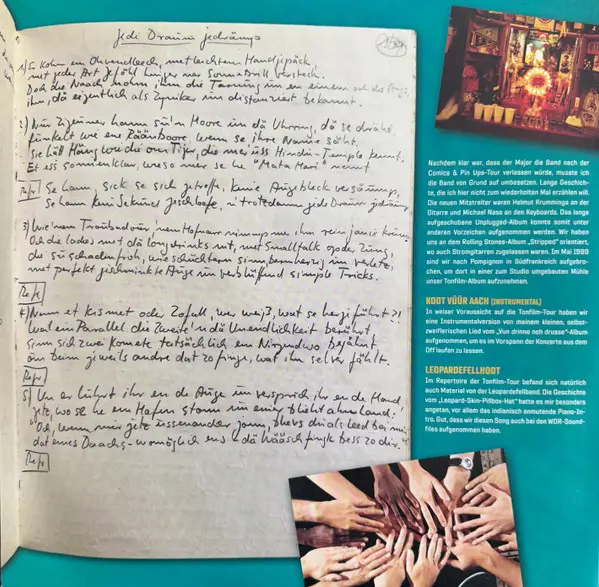 Jede Draum jedräump
159
1) kohm em Ohvendleech, met leichtem Handjepäck,
met jeder Art Jeföhl hinger ner Sonnebrill versteck.
Doch die Naach nohm ihm die Tarnung
ihm, dä eigentlich als Zyniker un distanziert bekannt.
2) Nur Zijeuner hann su'n Hoore un dä Uhrring, dä se dräht,
funkelt wie ene wenn se ihre Name säht.
Sie hätt Häng wie die vum Tijer, die mer uss Hindu-Temple kennt.
Et ess sonneklar, weso mer se he "Mata Hari" nennt
Refr Se hann sick se sich jetroffe, keine Augebleck versäump,
Se hann kein Sekund jeschloofe, un trotzdämm jede Draum jedräump
3) Wie 'nem Troubadour 'nem Hofnarr nimmp mer ihm
Och die met dä longdrinks nit, met Smalltalk op der Zung,
die su schüchtern sinn un verletz,
met perfekt jeschminkte Auge un verblüffend simple Tricks.
Refr
4) Nenn et Kismet oder Zofall, wer weiß, wat se herjeführt?!
Wat en Parallel die Zweite 'n dä Unendlichkeit berührt
sinn sich zwei Komete tatsächlich em Nirgendwo bejähnt
öm beim jeweils andre dat zo finge, wat ihm selver fählt.
Refr
5) Un er luhrt ihr en de Auge un versprich ihr en de Hand
wo se he em Hafen stonn un einig Blebt ahm Land:
"Och, wemmer jetz ussenander jonn, blievs du als Leed bei mir,
dat eines Daachs womöglich ens dä Wääsch fingk bess zo dir."
Refr
Nachdem klar war, dass der Major die Band nach der
Comics & Pin Ups-Tour verlassen würde, musste ich
die Band von Grund auf umbesetzen. Lange Geschich-
te, die ich hier nicht zum wiederholten Mal erzählen will.
Die neuen Mitstreiter waren Helmut Krumminga an der
Gitarre und Michael Nass an den Keyboards. Das lange
aufgeschobene Unplugged-Album konnte somit unter
anderen Vorzeichen aufgenommen werden. Wir haben
uns an dem Rolling Stones-Album „Stripped" orientiert,
wo auch Stromgitarren zugelassen waren. Im Mai 1999
sind wir nach Pompignon in Südfrankreich aufgebro-
chen, um dort in einer zum Studio umgebauten Mühle
unser Tonfilm-Album aufzunehmen.
KOOT VÜÜR AACH (INSTRUMENTAL)
In weiser Voraussicht auf die Tonfilm-Tour haben wir
eine Instrumentalversion von meinem kleinen, selbst-
zweiflerischen Lied vom „Vun drinne noh drusse"-Album
aufgenommen, um es im Vorspann der Konzerte aus dem
Off laufen zu lassen.
LEOPARDEFELLHOOT
Im Repertoire der Tonfilm-Tour befand sich natürlich
auch Material von der Leopardefellband. Die Geschichte
vom „Leopard-Skin-Pillbox-Hat" hatte es mir besonders
angetan, vor allem das indianisch anmutende Piano-In-
tro. Gut, dass wir diesen Song auch bei den WDR-Sound-
files aufgenommen haben.